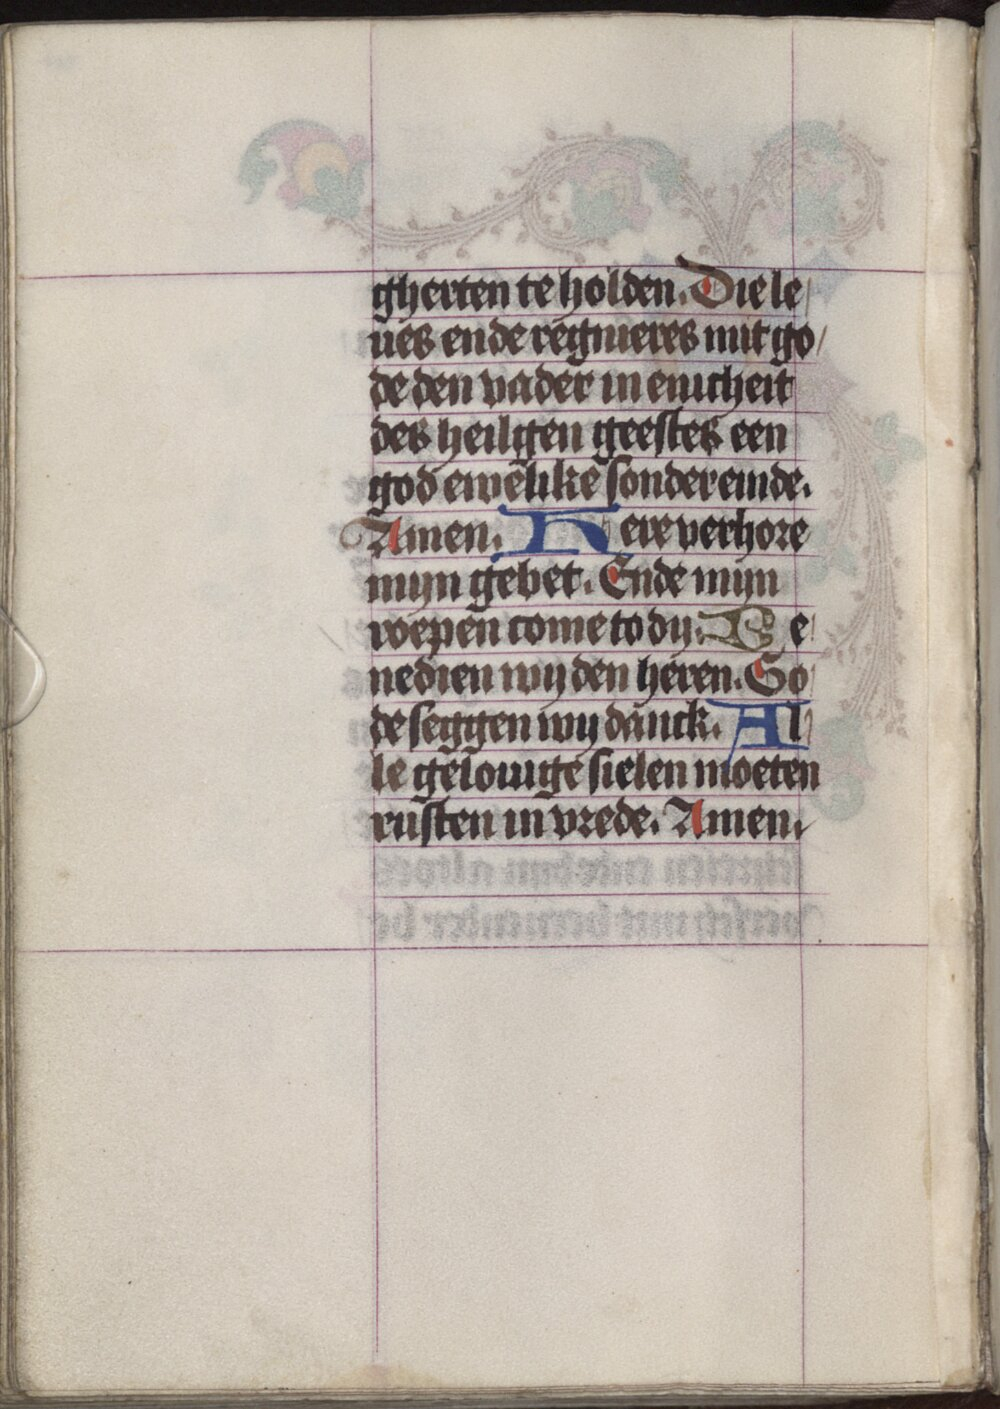 gherten te holden. Die le
ues ende regnieres mit go
de den vader in enicheit
des heiligen geestes een
god ewelike sonder einde.
Amen. Here verhore
mijn gebet. Ende mijn
roepen come to dy. Be
nedien wy den heren. Go
de seggen wy danck. Al
le gelouige sielen moeten
rusten in vrede. Amen.